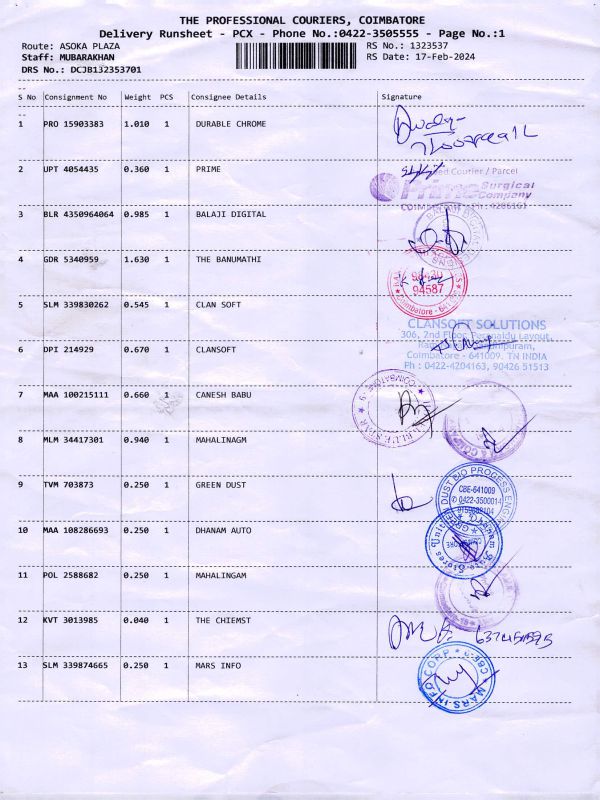 THE PROFESSIONAL COURIERS, COIMBATORE
Delivery Runsheet - PCX - Phone No.:0422-3505555 - Page No.:1
Route: ASOKA PLAZA RS No.: 1323537
Staff: MUBARAKHAN RS Date: 17-Feb-2024
DRS No.: DCJB132353701
S No Consignment No Weight PCS Consignee Details Signature
1 PRO 15903383 1.010 1 DURABLE CHROME
2 UPT 4054435 0.360 1 PRIME
Courier / Parcel
Prime Surgical
Company
3 BLR 4350964064 0.985 1 BALAJI DIGITAL
4 GDR 5340959 1.630 1 THE BANUMATHI
94587
Coimbatore - 641
5 SLM 339830262 0.545 1 CLAN SOFT
CLANSOFT SOLUTIONS
306, 2nd Floor, Layout,
6 DPI 214929 0.670 1 CLANSOFT
Coimbatore - 641009. TN INDIA
Ph : 0422-4204163, 90426 51513
7 MAA 100215111 0.660 1 CANESH BABU
8 MLM 34417301 0.940 1 MAHALINAGM
9 TVM 703873 0.250 1 GREEN DUST
GREEN DUST BIO PROCESS ENGR
CBE-641009
0422-3500014
10 MAA 108286693 0.250 1 DHANAM AUTO
11 POL 2588682 0.250 1 MAHALINGAM
12 KVT 3013985 0.040 1 THE CHIEMST
13 SLM 339874665 0.250 1 MARS INFO
MARS INFO CORP CBE-9